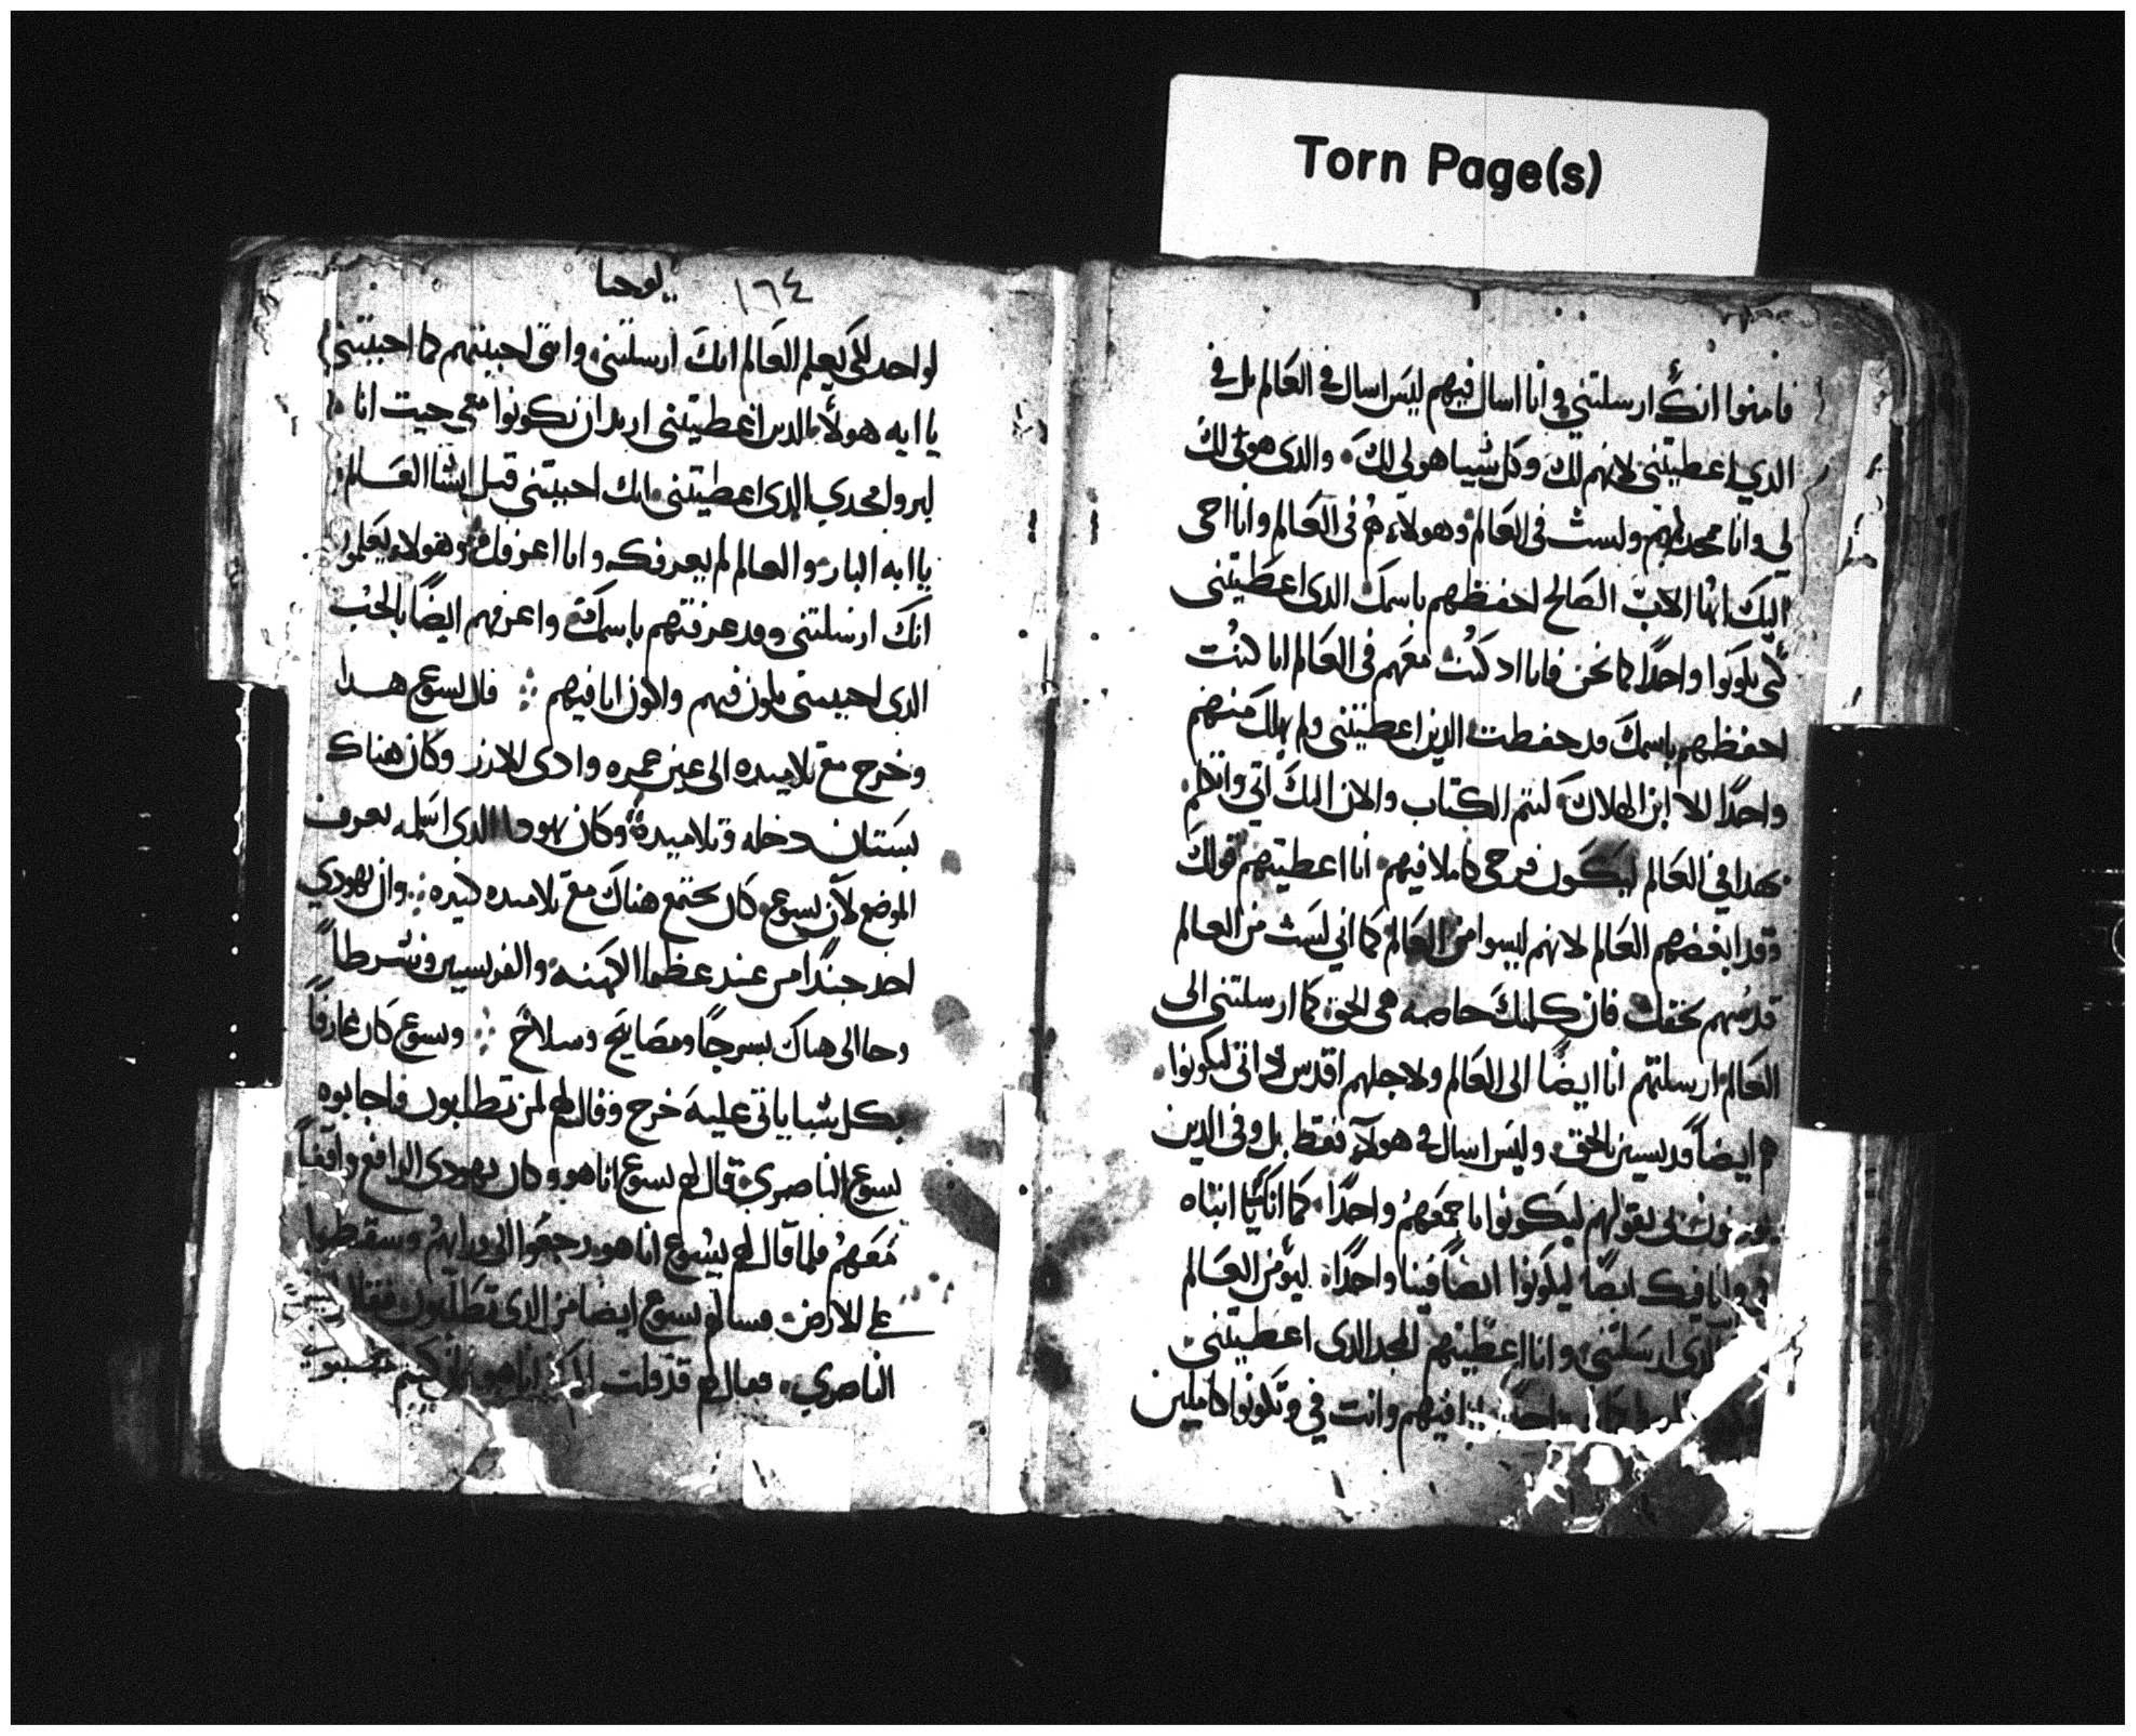 Torn Page(s)
فامنوا انك ارسلتني وانا اسال فيهم ليس اسال في العالم بل في
الدي اعطيتني لانهم لك وكل شييا هو لي لك والدي هو لك
لي وانا ممجد بهم ولست في العالم وهولاء هم في العالم وانا اجي
اليك ايها الاب الصالح احفظهم باسمك الدي اعطيتني
لكي يكونوا واحدا كما نحن فانا اد كنت معهم في العالم انا كنت
احفظهم باسمك قد حفظت الدين اعطيتني ولم يهلك منهم
واحدا الا ابن الهلاك ليتم الكتاب والان اليك اتي واتكلم
بهدا في العالم ليكون فرحي كاملا فيهم انا اعطيتهم قولك
وقد ابغضهم العالم لانهم ليسوا من العالم كما اني لست من العالم
قدسهم بحقك فان كلمتك خاصه هي الحق كما ارسلتني الى
العالم ارسلتهم انا ايضا الى العالم ولاجلهم اقدس داتي ليكونوا
هم ايضا قديسين بالحق وليس اسال في هولاء فقط بل وفي الدين
يومنون بي بقولهم ليكونوا باجمعهم واحدا كما انك يا ابتاه
في وانا فيك ايضا ليكونوا ايضا فينا واحدا ليؤمن العالم
الدي ارسلتني وانا اعطيتهم المجد الدي اعطيتني
فيهم وانت في ويكونوا كاملين
يوحنا ١٦٤
لواحد لكي يعلم العالم انك ارسلتني وانني احببتهم كما احببتني
يا ابه هولاء الدين اعطيتني اريد ان يكونوا معي حيت انا
ليروا مجدي الدي اعطيتني انك احببتني قبل انشا العالم
يا ابه البار والعالم لم يعرفك وانا اعرفك وهولاء يعلموا
انك ارسلتني وقد عرفتهم باسمك واعرفهم ايضا بالحب
الدي احببتني يكون فيهم واكون انا فيهم قال يسوع هدا
وخرج مع تلاميده الى عبر وادي الارز وكان هناك
بستان دخله وتلاميده وكان يهودا الدي اسلمه يعرف
الموضع لان يسوع كان يجتمع هناك مع تلاميده كثيره وان يهودي
احد جندا من عند عظما الكهنه والفريسيين وشرطا
وجا الى هناك بسرجا ومصابيح وسلاح ويسوع كان عارفا
بكل شيا ياتي عليه خرج وقال لهم لمن تطلبون فاجابوه
يسوع الناصري فقال لهم يسوع انا هو وكان يهودي الدافع واقفا
معهم فلما قال لهم يسوع انا هو رجعوا الى ورايهم وسقطوا
على الارض فسالهم يسوع ايضا من الدي تطلبون فقالوا
الناصري فقال لهم قد قلت لكم انا هو ان كنتم